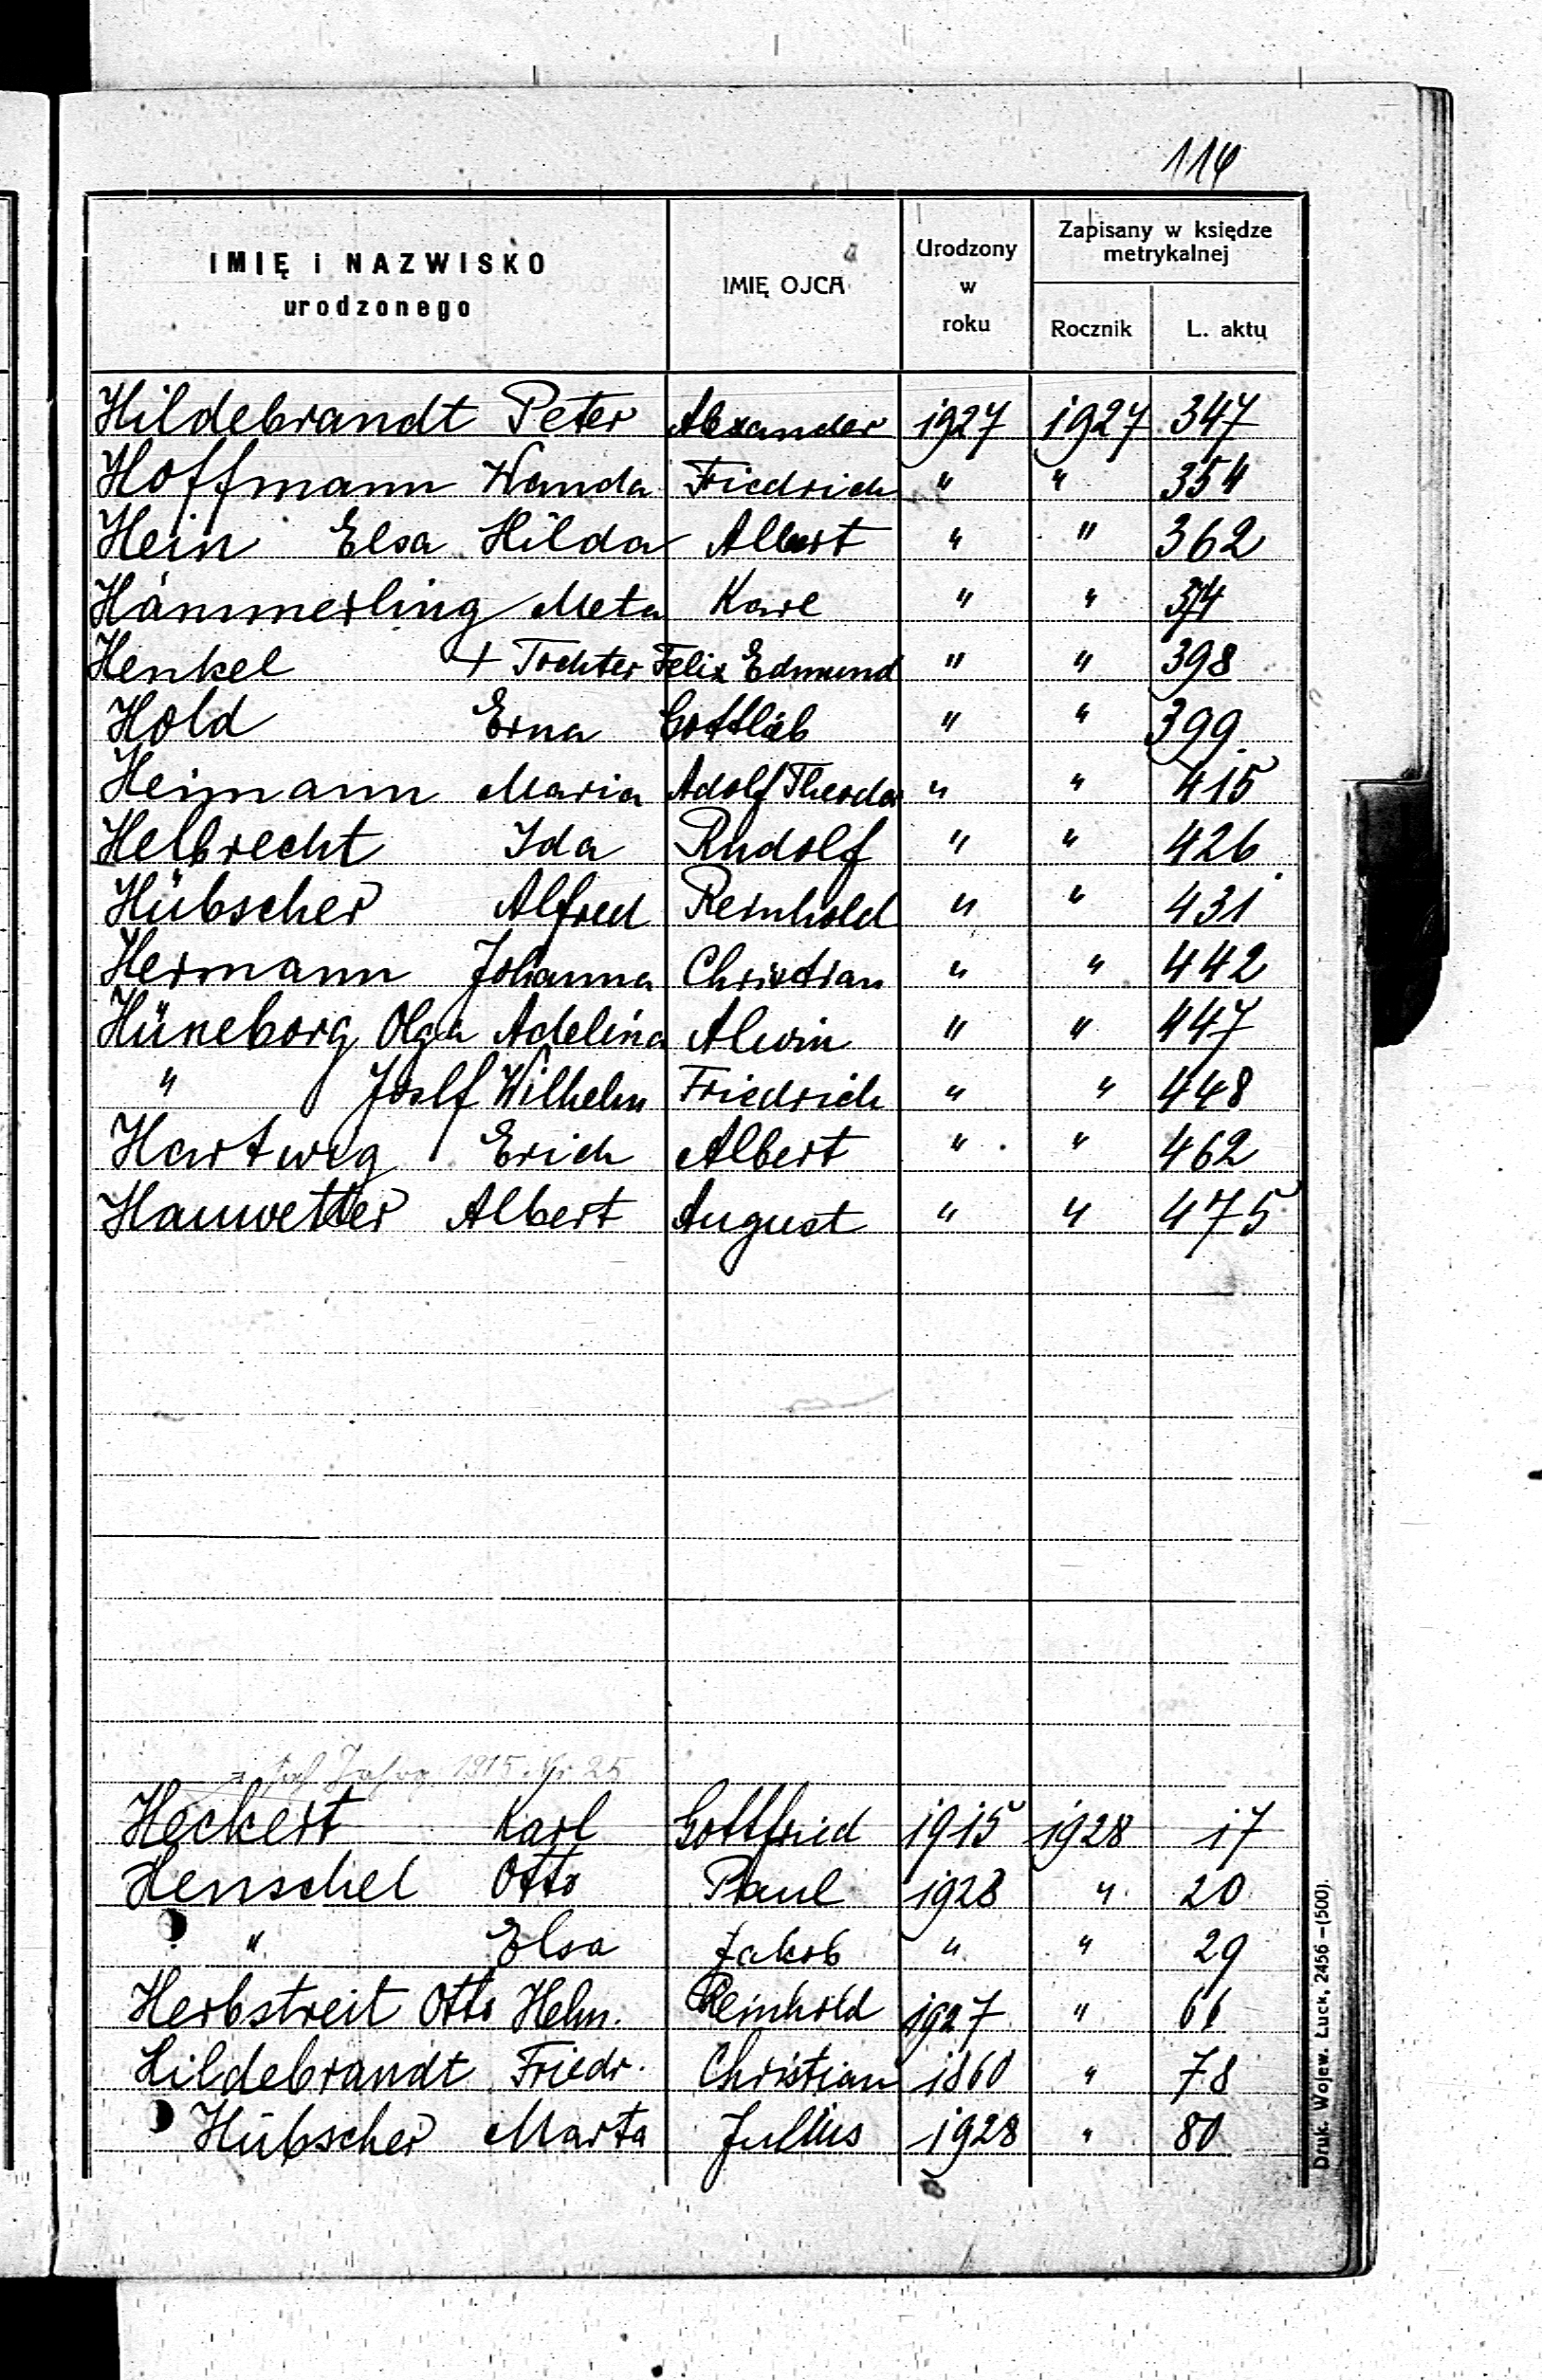 114
IMIĘ i NAZWISKO
urodzonego
IMIĘ OJCA
Urodzony
w
roku
Zapisany w księdze
metrykalnej
Rocznik
L. aktu
Hildebrandt Peter Alexander 1927 1927 347
Hoffmann Wanda Friedrich " " 354
Hein Elsa Hilda Albert " " 362
Hämmerling Meta Karl " " 374
Henkel + Tochter Felix Edmund " " 398
Hold Erna Gottlieb " " 399
Heimann Maria Adolf Theodor " " 415
Helbrecht Ida Rudolf " " 426
Hübscher Alfred Reinhold " " 431
Hermann Johanna Christian " " 442
Hüneborg Olga Adelina Alwin " " 447
" Wilhelm Friedrich " " 448
Hartwig Erich Albert " " 462
Hauwetter Albert August " " 475
1915 Nr 25
Heckert Karl Gottfried 1915 1928 17
Henschel Otto Paul 1928 " 20
" Elsa Jakob " " 29
Herbstreit Otto Helm. Reinhold 1927 " 66
Hildebrandt Friedr. Christian 1860 " 78
Hübscher Marta Julius 1928 " 80
Druk. Wojew. Łuck, 2456 —(500).